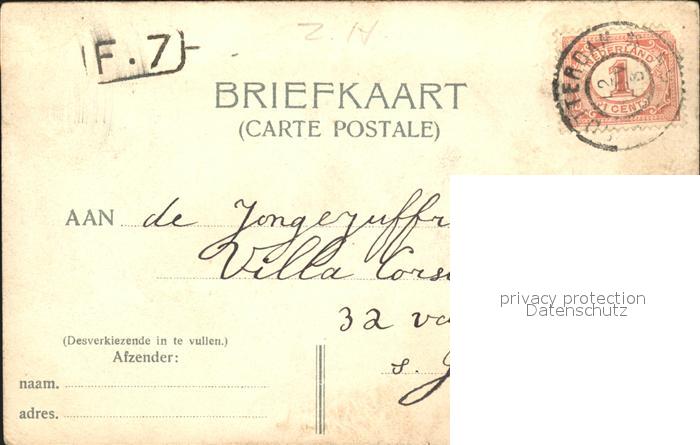 Z.H.
F.7
BRIEFKAART
(CARTE POSTALE)
NEDERLAND
1
1 CENT
AAN de Jongejuffr
Villa Cors
32 va
s. J
privacy protection
Datenschutz
(Desverkiezende in te vullen.)
Afzender:
naam.
adres.